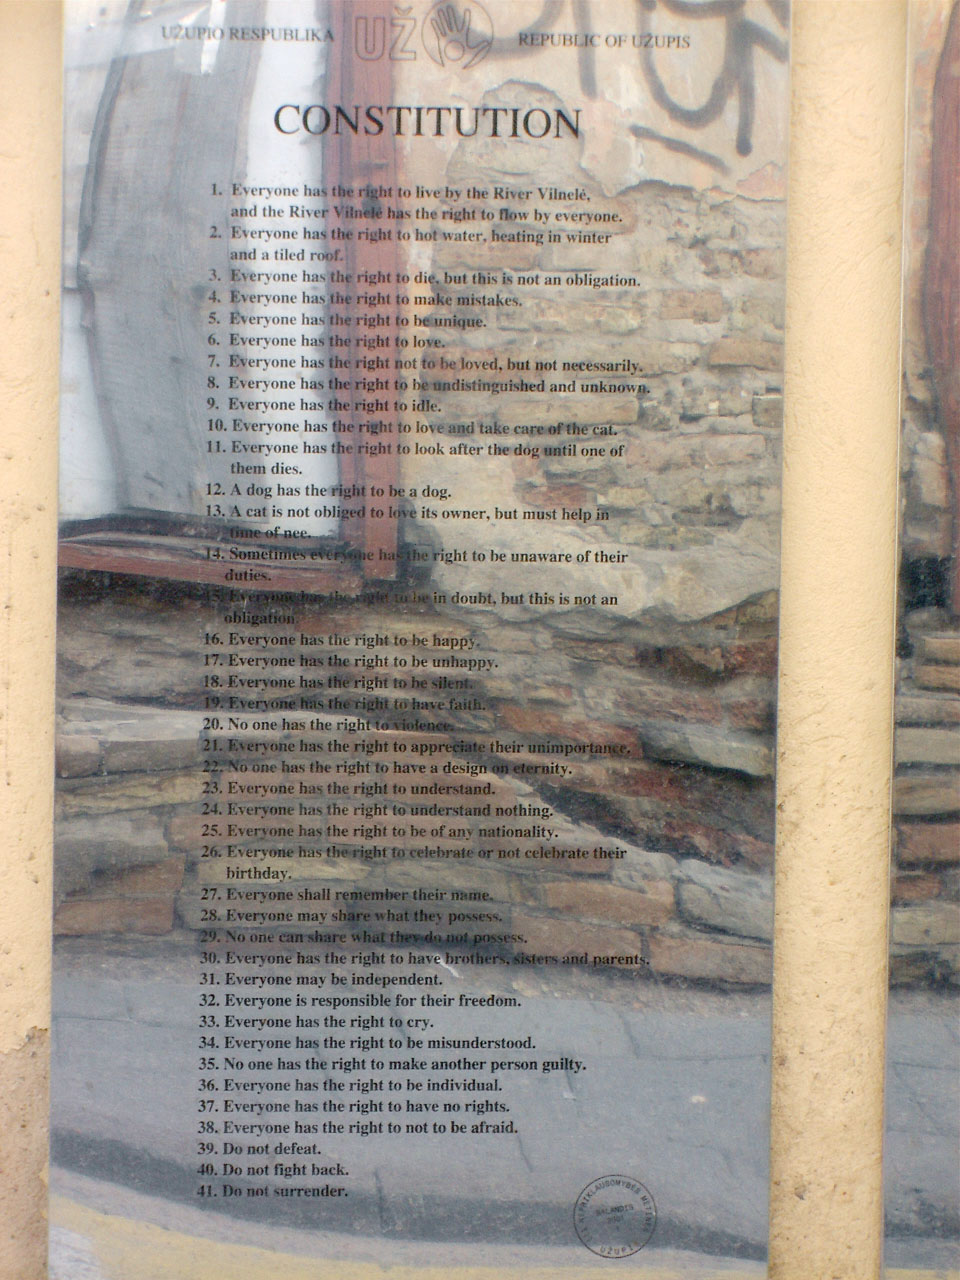 UŽUPIO RESPUBLIKA
UŽ
REPUBLIC OF UŽUPIS
CONSTITUTION
1. Everyone has the right to live by the River Vilnelė,
and the River Vilnelė has the right to flow by everyone.
2. Everyone has the right to hot water, heating in winter
and a tiled roof.
3. Everyone has the right to die, but this is not an obligation.
4. Everyone has the right to make mistakes.
5. Everyone has the right to be unique.
6. Everyone has the right to love.
7. Everyone has the right not to be loved, but not necessarily.
8. Everyone has the right to be undistinguished and unknown.
9. Everyone has the right to idle.
10. Everyone has the right to love and take care of the cat.
11. Everyone has the right to look after the dog until one of
them dies.
12. A dog has the right to be a dog.
13. A cat is not obliged to love its owner, but must help in
time of nee.
14. Sometimes everyone has the right to be unaware of their
duties.
15. Everyone has the right to be in doubt, but this is not an
obligation.
16. Everyone has the right to be happy.
17. Everyone has the right to be unhappy.
18. Everyone has the right to be silent.
19. Everyone has the right to have faith.
20. No one has the right to violence.
21. Everyone has the right to appreciate their unimportance.
22. No one has the right to have a design on eternity.
23. Everyone has the right to understand.
24. Everyone has the right to understand nothing.
25. Everyone has the right to be of any nationality.
26. Everyone has the right to celebrate or not celebrate their
birthday.
27. Everyone shall remember their name.
28. Everyone may share what they possess.
29. No one can share what they do not possess.
30. Everyone has the right to have brothers, sisters and parents.
31. Everyone may be independent.
32. Everyone is responsible for their freedom.
33. Everyone has the right to cry.
34. Everyone has the right to be misunderstood.
35. No one has the right to make another person guilty.
36. Everyone has the right to be individual.
37. Everyone has the right to have no rights.
38. Everyone has the right to not to be afraid.
39. Do not defeat.
40. Do not fight back.
41. Do not surrender.
UŽUPIS